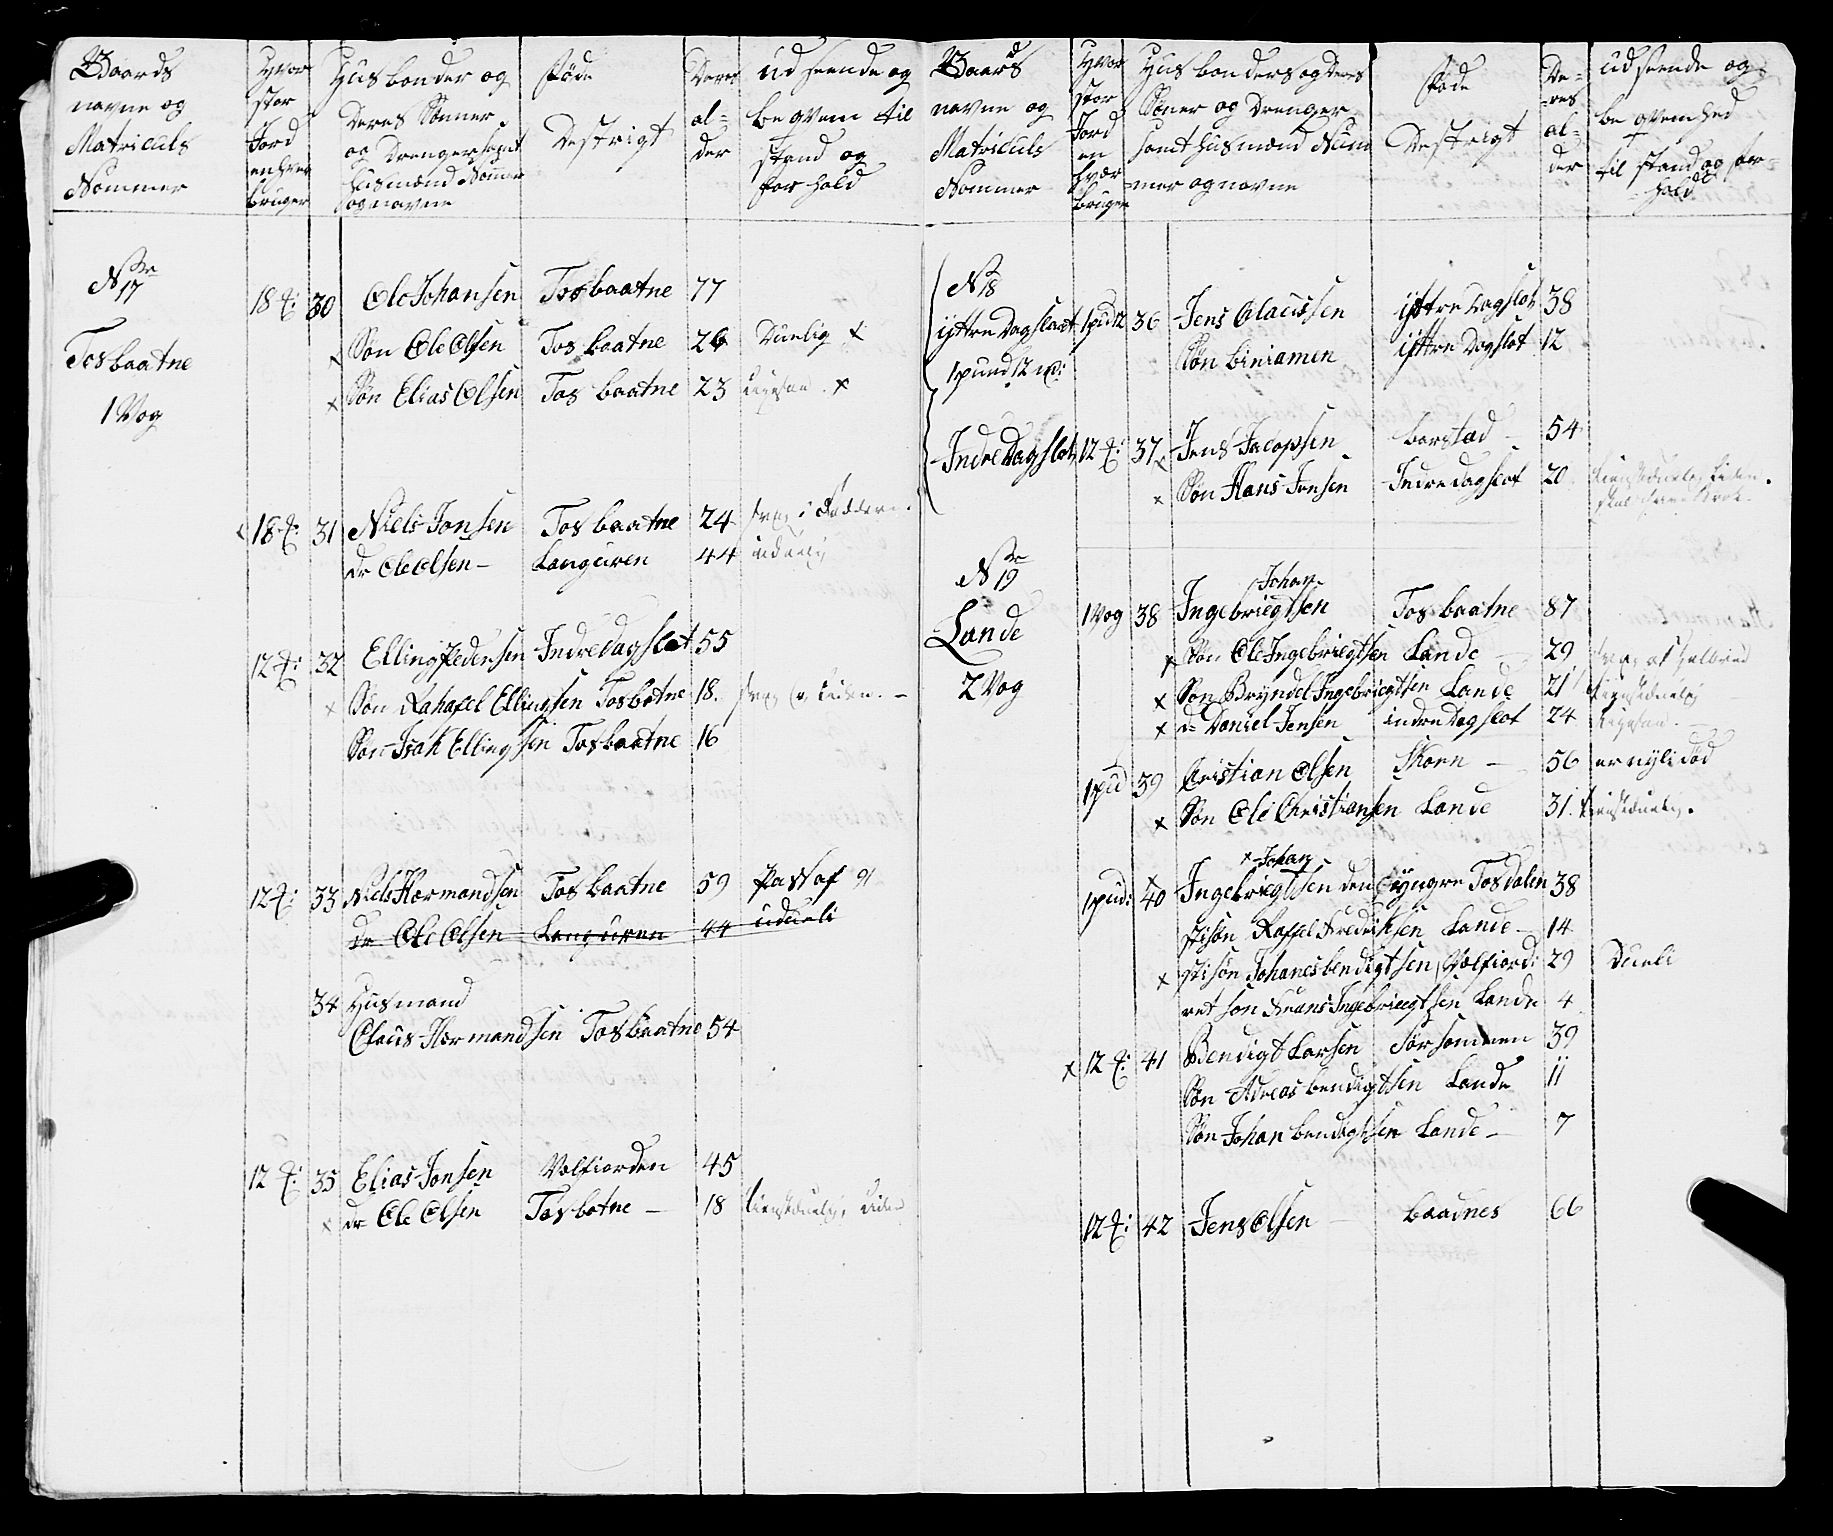 Gaards
navne og
Matriculs
Nommer
Hvor
stor
Jord
enhver
bruger
Husbonder og
Deres Sønner
og Drenger samt
husmænd Nommer
og navne
føde
Destrigt
Deres
al-
der
udseende og
beqvem til
stand og
forhold
No 17
Tosbaatne
1 Vog
18 30 Ole Johansen Tosbaatne 77
x Søn Ole Olsen Tosbaatne 26 Duelig x
x Søn Elias Olsen Tosbaatne 23 x
18 31 Niels Jonsen Tosbaatne 24
Dr Ole Olsen - Languren 44 uduelig
12 32 Elling Pedersen Indredagslot 55
x Søn Rahafel Ellingsen Tosbotne 18
Søn Isak Ellingsen Tosbaatne 16
12 33 Niels Hermandsen Tosbaatne 59
Dr Ole Olsen Languren 44 udueli
34 Husmand
Claus Hermandsen Tosbaatne 54
12 35 Elias Jonsen Velfiorden 45
x dr Ole Olsen Tosbotne - 18
Gaards
navne og
Matriculs
Nommer
Hvor
stor
Jord
en
hvær
bruger
Husbonders og Deres
Søner og Drenger
samt husmænd Num
mer og navne
føde
Destrigt
De-
res
al-
der
udseende og
beqvemhed
til stand og for-
hold
No 18
yttre Dagslaat 1 pud 12 36 Jens Claussen yttre Dagslot 38
1 pund 12
Søn biniamen yttre Dagslot 12
Indre Dagslot 12 37 x Jens Jacopsen borstad 54
x Søn Hans Jensen Indredagslot 20
No 19
Lande
2 Vog
1 Vog 38 Johan
Ingebriegtsen Tosbaatne 87
x Søn Ole Ingebriegtsen Lande 29
x Søn Bryndel Ingebriegtsen Lande 21
x dr Daniel Jensen indre Dagslot 24
1 pud 39 Cristian Olsen Skorn - 56 er nyli død
x Søn Ole Christiansen Lande 31
x Johan
1 pud 40 Ingebriegtsen den yngre Tosdalen 38
stisøn Raffel Fredriksen Lande - 14
x stisøn Johanes bendigtsen Velfiord 29 Dueli
ret søn Ingebriegtsen Lande 4
x 12 41 Bendigt Larsen Sørsomnen 39
Søn Adreas bendigtsen Lande 11
Søn Johan bendigtsen Lande - 7
12 42 Jens Olsen - baadnes 66